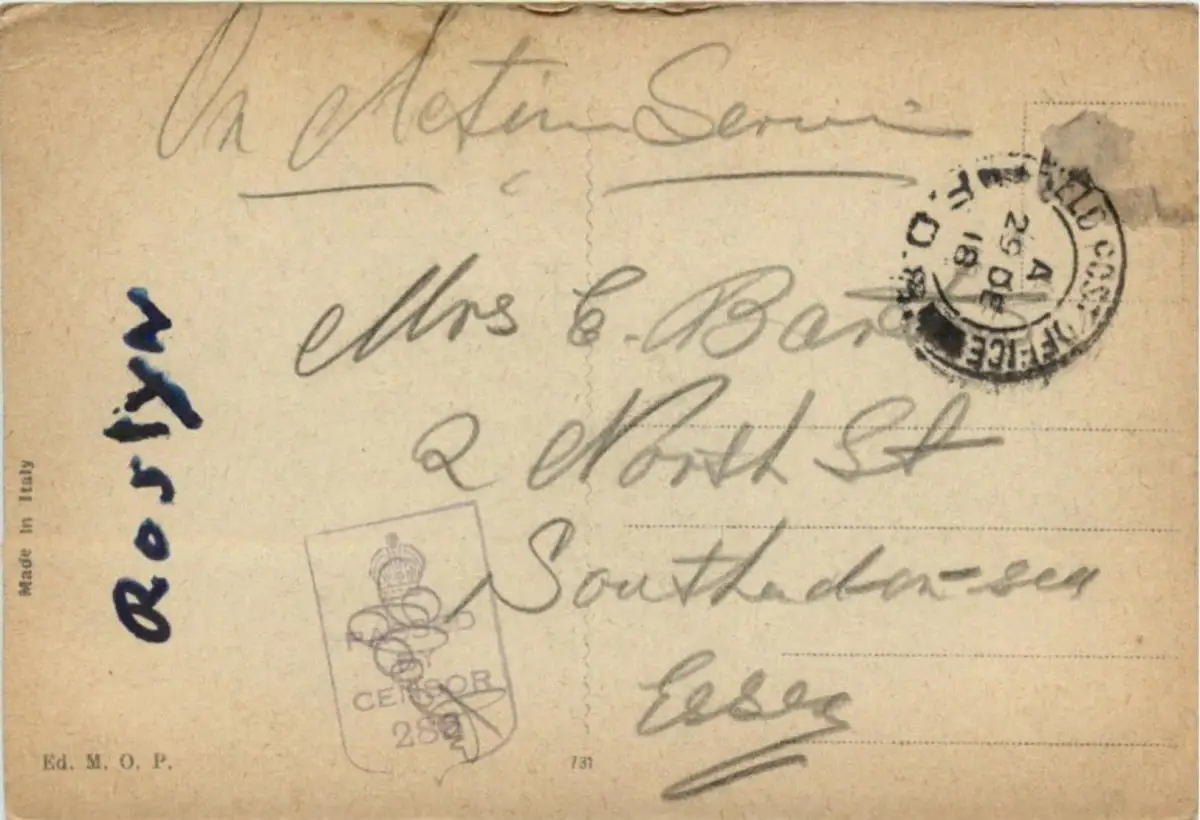 On Active Service
Mrs E.
2 North St
Southend-on-sea
Essex
FIELD POST OFFICE
F.O.
A
29 DE
18
PASSED
BY
CENSOR
Roslyn
Made in Italy
Ed. M. O. P.
731